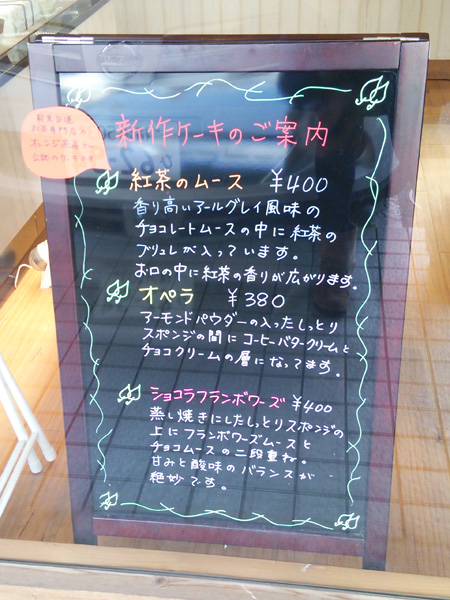 新作ケーキのご案内
紅茶のムース ¥400
香り高いアールグレイ風味の
チョコレートムースの中に紅茶の
ブリュレが入っています。
お口の中に紅茶の香りが広がります。
オペラ ¥380
アーモンドパウダーの入ったしっとり
スポンジの間にコーヒーバタークリームと
チョコクリームの層になってます。
ショコラフランボワーズ ¥400
蒸し焼きにしたしっとりスポンジの
上にフランボワーズムースと
チョコムースの二段重ね。
甘みと酸味のバランスが
絶妙です。